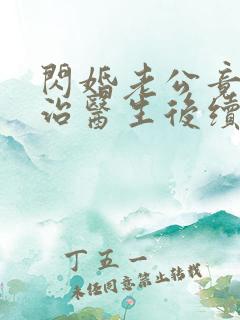 閃婚老公竟
治醫生後續
丁五一
未经同意禁止转载